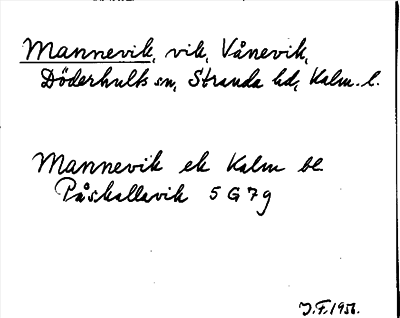 Mannevik, vik, Vånevik,
Döderhults sn, Stranda hd, Kalm. l.
Mannevik ek Kalm bl
Påskallavik 5 G 7 g
J.F. 1956.